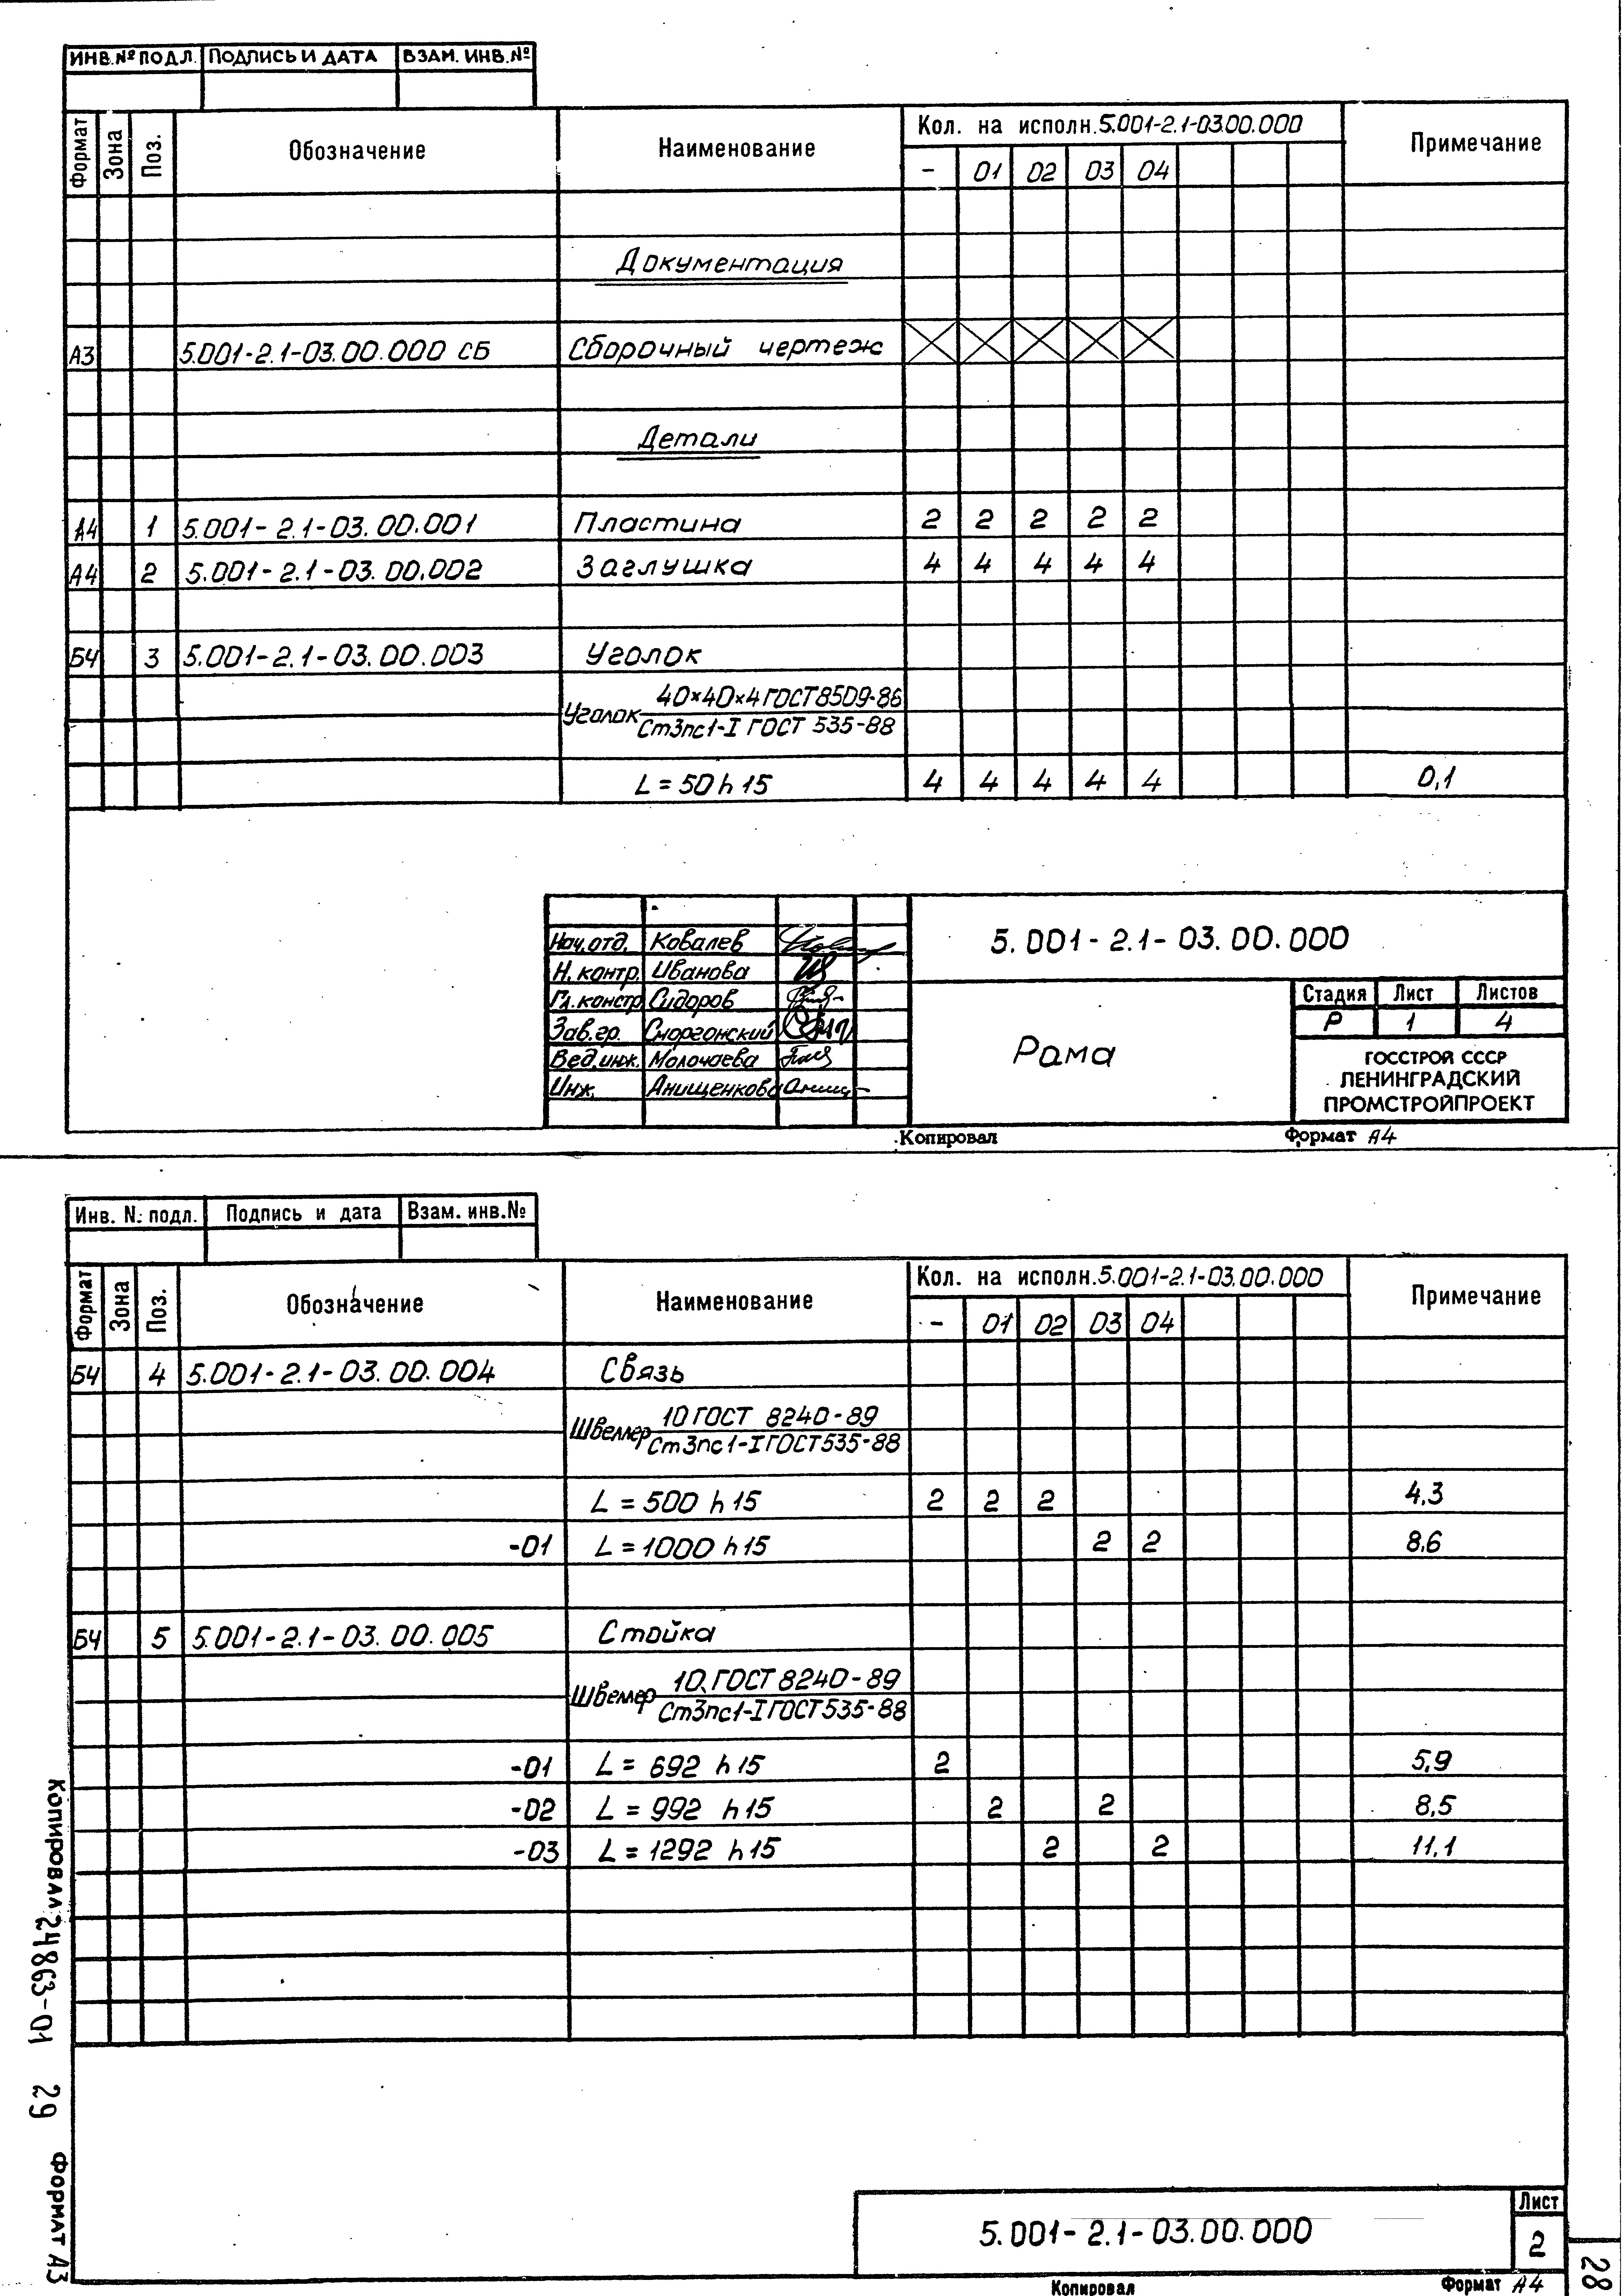 ИНВ.№ ПОДЛ. ПОДПИСЬ И ДАТА ВЗАМ. ИНВ.№
Формат Зона Поз. Обозначение Наименование Кол. на исполн.5.001-2.1-03.00.000 Примечание
- 01 02 03 04
Документация
А3 5.001-2.1-03.00.000 СБ Сборочный чертеж
Детали
А4 1 5.001-2.1-03.00.001 Пластина 2 2 2 2 2
А4 2 5.001-2.1-03.00.002 Заглушка 4 4 4 4 4
БЧ 3 5.001-2.1-03.00.003 Уголок
40×40×4 ГОСТ 8509-86
Уголок
Ст3пс1-I ГОСТ 535-88
L = 50 h 15 4 4 4 4 4 0,1
Нач.отд. Ковалев
Н. контр. Иванова
Гл.констр Сидоров
Зав.гр. Сморгонский
Вед.инж. Молочаева
Инж. Анищенкова
5.001-2.1-03.00.000
Рама
Стадия Лист Листов
Р 1 4
ГОССТРОЙ СССР
ЛЕНИНГРАДСКИЙ
ПРОМСТРОЙПРОЕКТ
Копировал Формат А4
Инв. N. подл. Подпись и дата Взам. инв.№
Формат Зона Поз. Обозначение Наименование Кол. на исполн.5.001-2.1-03.00.000 Примечание
- 01 02 03 04
БЧ 4 5.001-2.1-03.00.004 Связь
10 ГОСТ 8240-89
Швеллер
Ст3пс1-I ГОСТ 535-88
L = 500 h 15 2 2 2 4,3
-01 L = 1000 h 15 2 2 8,6
БЧ 5 5.001-2.1-03.00.005 Стойка
10 ГОСТ 8240-89
Швеллер
Ст3пс1-I ГОСТ 535-88
-01 L = 692 h 15 2 5,9
-02 L = 992 h 15 2 2 8,5
-03 L = 1292 h 15 2 2 11,1
5.001-2.1-03.00.000
Лист
2
Копировал Формат А4
Копировал 24863-01 29 Формат А3
28